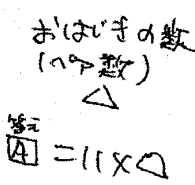 おはじきの数
(ペア数)
△
答え
A = 11 × △